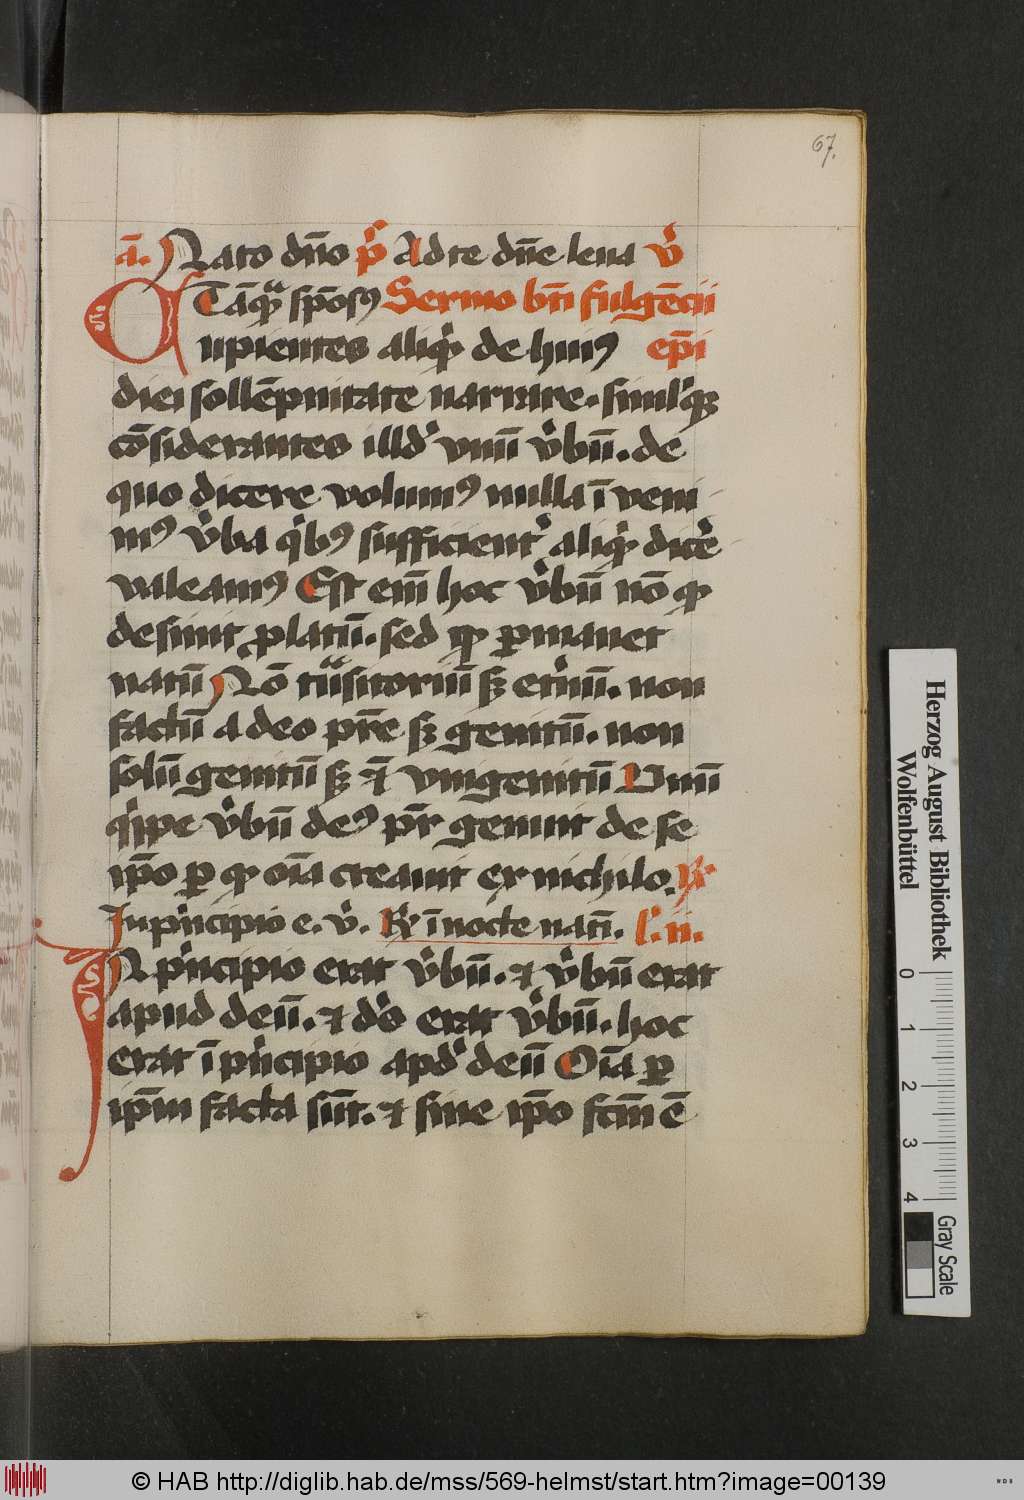 67.
ā. Nato dn̄o p̄s Ad te dn̄e leua v̓
Tāqᷓ spōsꝰ Sermo bt̄i fulgēcii
Cupientes aliqͥd de huiꝰ ep̄i
diei sollēpnitate narrare. simulqꝫ
cōsiderantes illd̓ vnū v̓bū. de
quo dicere volumꝰ nulla īveni
mꝰ v̓ba qͥbꝰ sufficient̓ aliqͥd dice̓
valeamꝰ Est em̄ hoc v̓bū nō qꝫ
desinit ꝓlatū. sed qꝫ ꝑmanet
natū Nō tᷓnsitoriū sꝫ et̓nū. non
factū a deo pr̄e sꝫ genitū. non
solū genitū sꝫ ⁊ vnigenitū Vnū
qͥppe v̓bū deꝰ pr̄ genuit de se
ip̄o ꝑ qꝫ oīa creauit ex nichilo. ℞
In pͥncipio e. v̓. ℞ ī nocte nat̄i. l̓. ii.
IN pͥncipio erat v̓bū. ⁊ v̓bū erat
apud deū. ⁊ ds̓ erat v̓bū. hoc
erat ī pͥncipio apd̓ deū Oīa ꝑ
ip̄m facta sūt. ⁊ sine ip̄o fcm̄ ē
Herzog August Bibliothek
Wolfenbüttel
0 1 2 3 4
Gray Scale
© HAB http://diglib.hab.de/mss/569-helmst/start.htm?image=00139